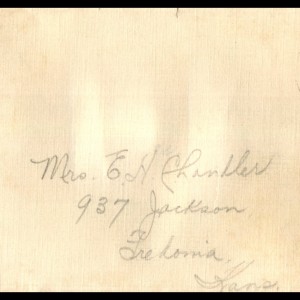 Mrs. E. H. Chandler
937 Jackson
Fredonia,
Kans.